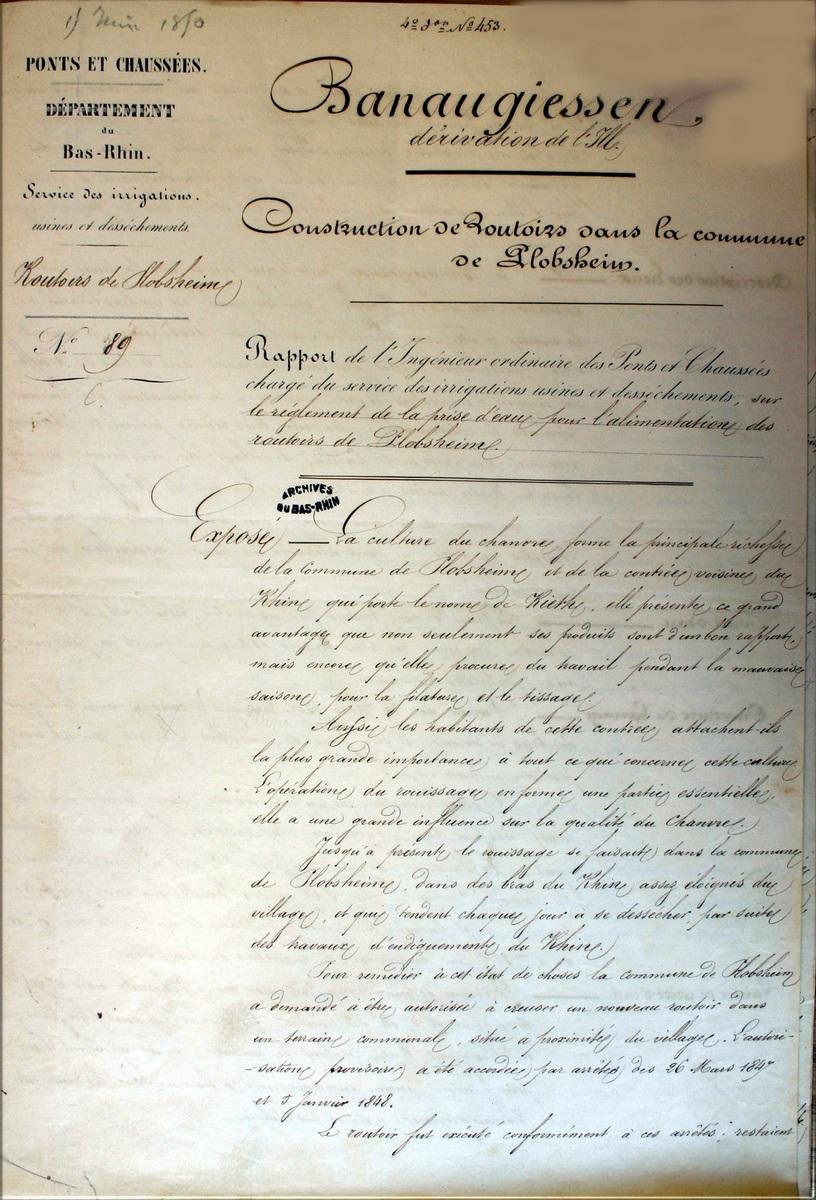 15 Juin 1850
4e Son No 453.
PONTS ET CHAUSSÉES.
DÉPARTEMENT
du
Bas-Rhin.
Service des irrigations.
usines et dessèchements.
Routoirs de Plobsheim
No 89
Banaugiessen,
dérivation de l'Ill.
Construction de Routoirs dans la commune
de Plobsheim.
Rapport de l'Ingénieur ordinaire des Ponts et Chaussées
chargé du service des irrigations usines et dessèchements, sur
le règlement de la prise d'eau pour l'alimentation des
routoirs de Plobsheim.
ARCHIVES
DU BAS-RHIN
Exposé — La culture du chanvre forme la principale richesse
de la Commune de Plobsheim et de la contrée voisine du
Rhin qui porte le nom de Rieth, elle présente ce grand
avantage que non seulement ses produits sont d'un bon rapport,
mais encore qu'elle procure du travail pendant la mauvaise
saison, pour la filature et le tissage.
Aussi les habitants de cette contrée attachent-ils
la plus grande importance à tout ce qui concerne cette culture
L'opération du rouissage en forme une partie essentielle,
elle a une grande influence sur la qualité du Chanvre.
Jusqu'à présent le rouissage se faisait dans la commune
de Plobsheim, dans des bras du Rhin assez éloignés du
village, et qui tendent chaque jour à se dessécher par suite
des travaux d'endiguement du Rhin.
Pour remédier à cet état de choses la commune de Plobsheim
a demandé à être autorisée à creuser un nouveau routoir dans
un terrain communal, situé à proximité du village. L'autori-
-sation provisoire a été accordée par arrêtés des 26 Mars 1847
et 5 Janvier 1848.
Le routoir fut exécuté conformément à ces arrêtés; restaient